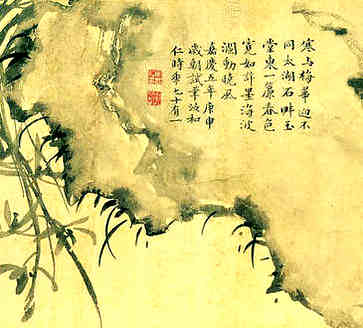 寒与梅華迥不
同太湖石畔玉
堂東一簾春色
寛如許墨海波
瀾動晚風
嘉慶五年庚申
歲朝試筆和
仁時秊七十有一